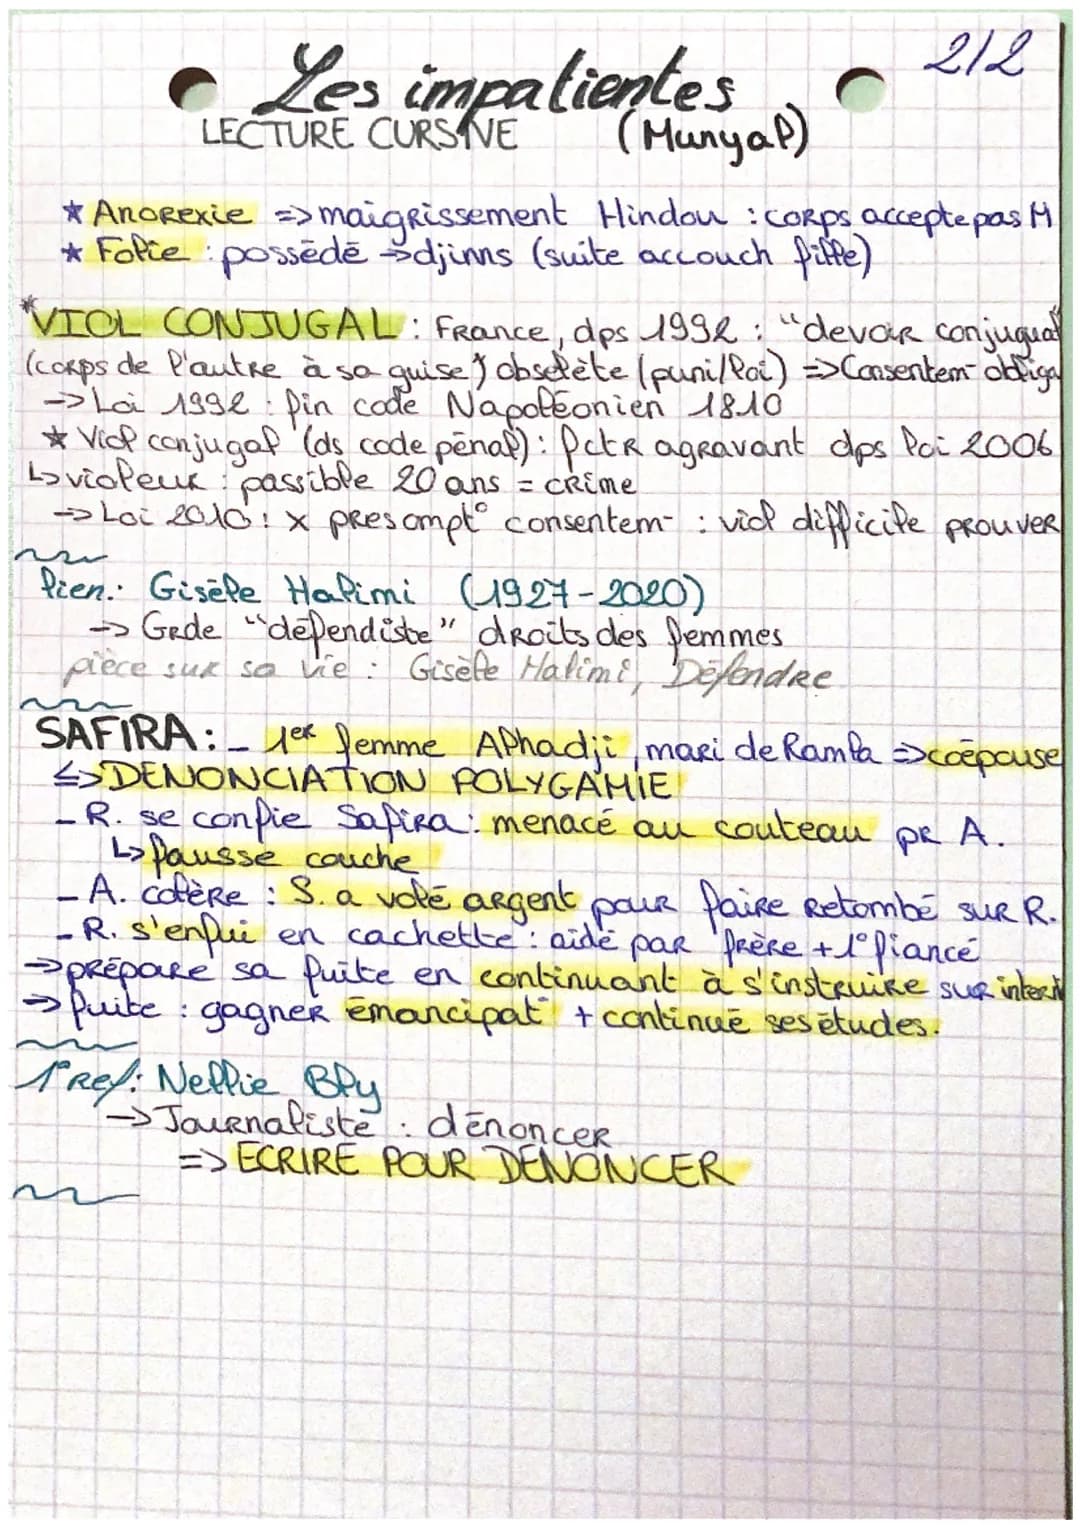 2/2
Les impatientes
LECTURE CURSIVE (Munyal)
* Anorexie => maigrissement Hindou : corps accepte pas M
* Folie : possédé → djinns (suite accouch fille)
*VIOL CONJUGAL : France, dps 1992 : "devoir conjugual"
(corps de l'autre à sa guise) obselète (puni/loi) => Consentem- obliga
→ Loi 1992 : fin code Napoléonien 1810
* Viol conjugal (ds code pénal) : fctr agravant dps loi 2006
↳ violeur : passible 20 ans = crime
→ Loi 2010 : x présompt° consentem- : viol difficile prouver
lien : Gisèle Halimi (1927-2020)
→ Grde "défendiste" droits des femmes
pièce sur sa vie : Gisèle Halimi, Défendre
SAFIRA : - 1er femme Alhadji, mari de Ramla => coépouse
<=> DENONCIATION POLYGAMIE
- R. se confie Safira : menacé au couteau pr A.
↳ fausse couche
- A. colère : S. a volé argent pour faire retombé sur R.
- R. s'enfui en cachette : aidé par frère + 1° fiancé
=> prépare sa fuite en continuant à s'instruire sur intern
=> fuite : gagner émancipat° + continué ses études.
1° Ref : Nellie Bly
→ Journaliste : dénoncer
=> ECRIRE POUR DENONCER